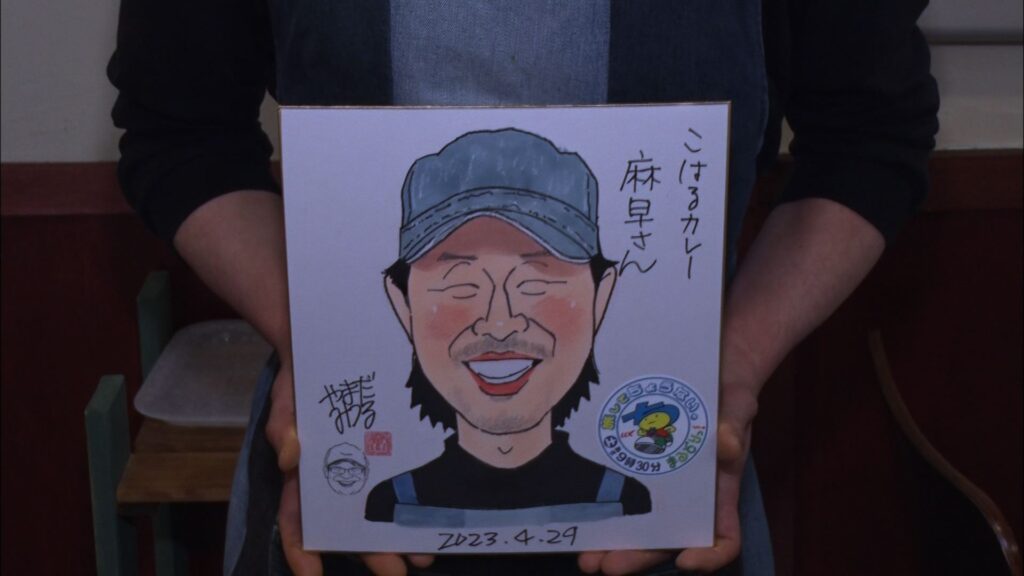 こはるカレー
麻早さん
やまだ
みつる
UX
土曜9時30分
2023.4.29